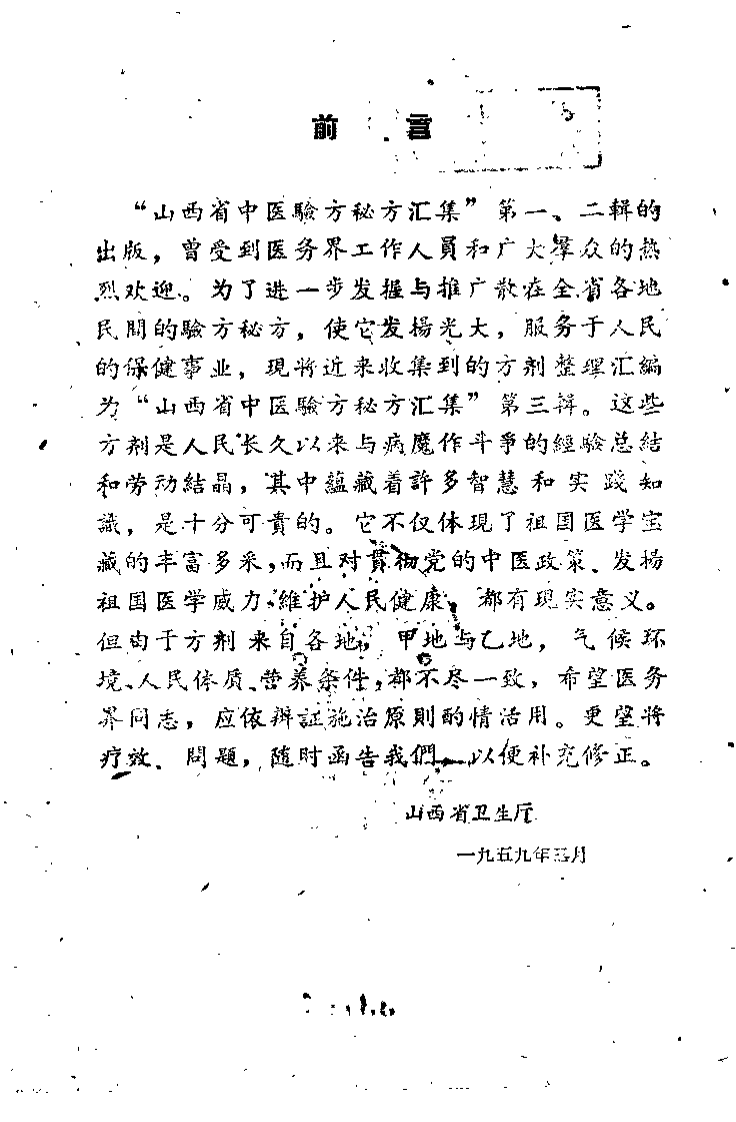 前言
“山西省中医驗方秘方汇集”第一、二輯的
出版，曾受到医务界工作人員和广大羣众的热
烈欢迎。为了进一步发掘与推广散在全省各地
民間的驗方秘方，使它发揚光大，服务于人民
的保健事业，現将近来收集到的方剂整理汇編
为“山西省中医驗方秘方汇集”第三輯。这些
方剂是人民长久以来与病魔作斗爭的經驗总結
和劳动結晶，其中蘊藏着許多智慧和实践知
識，是十分可貴的。它不仅体現了祖国医学宝
藏的丰富多采，而且对貫彻党的中医政策、发揚
祖国医学威力、維护人民健康，都有現实意义。
但由于方剂来自各地，甲地与乙地，气候环
境、人民体质、营养条件，都不尽一致，希望医务
界同志，应依辨証施治原則酌情活用。更望将
疗效、問題，随时函告我們，以便补充修正。
山西省卫生厅
一九五九年三月